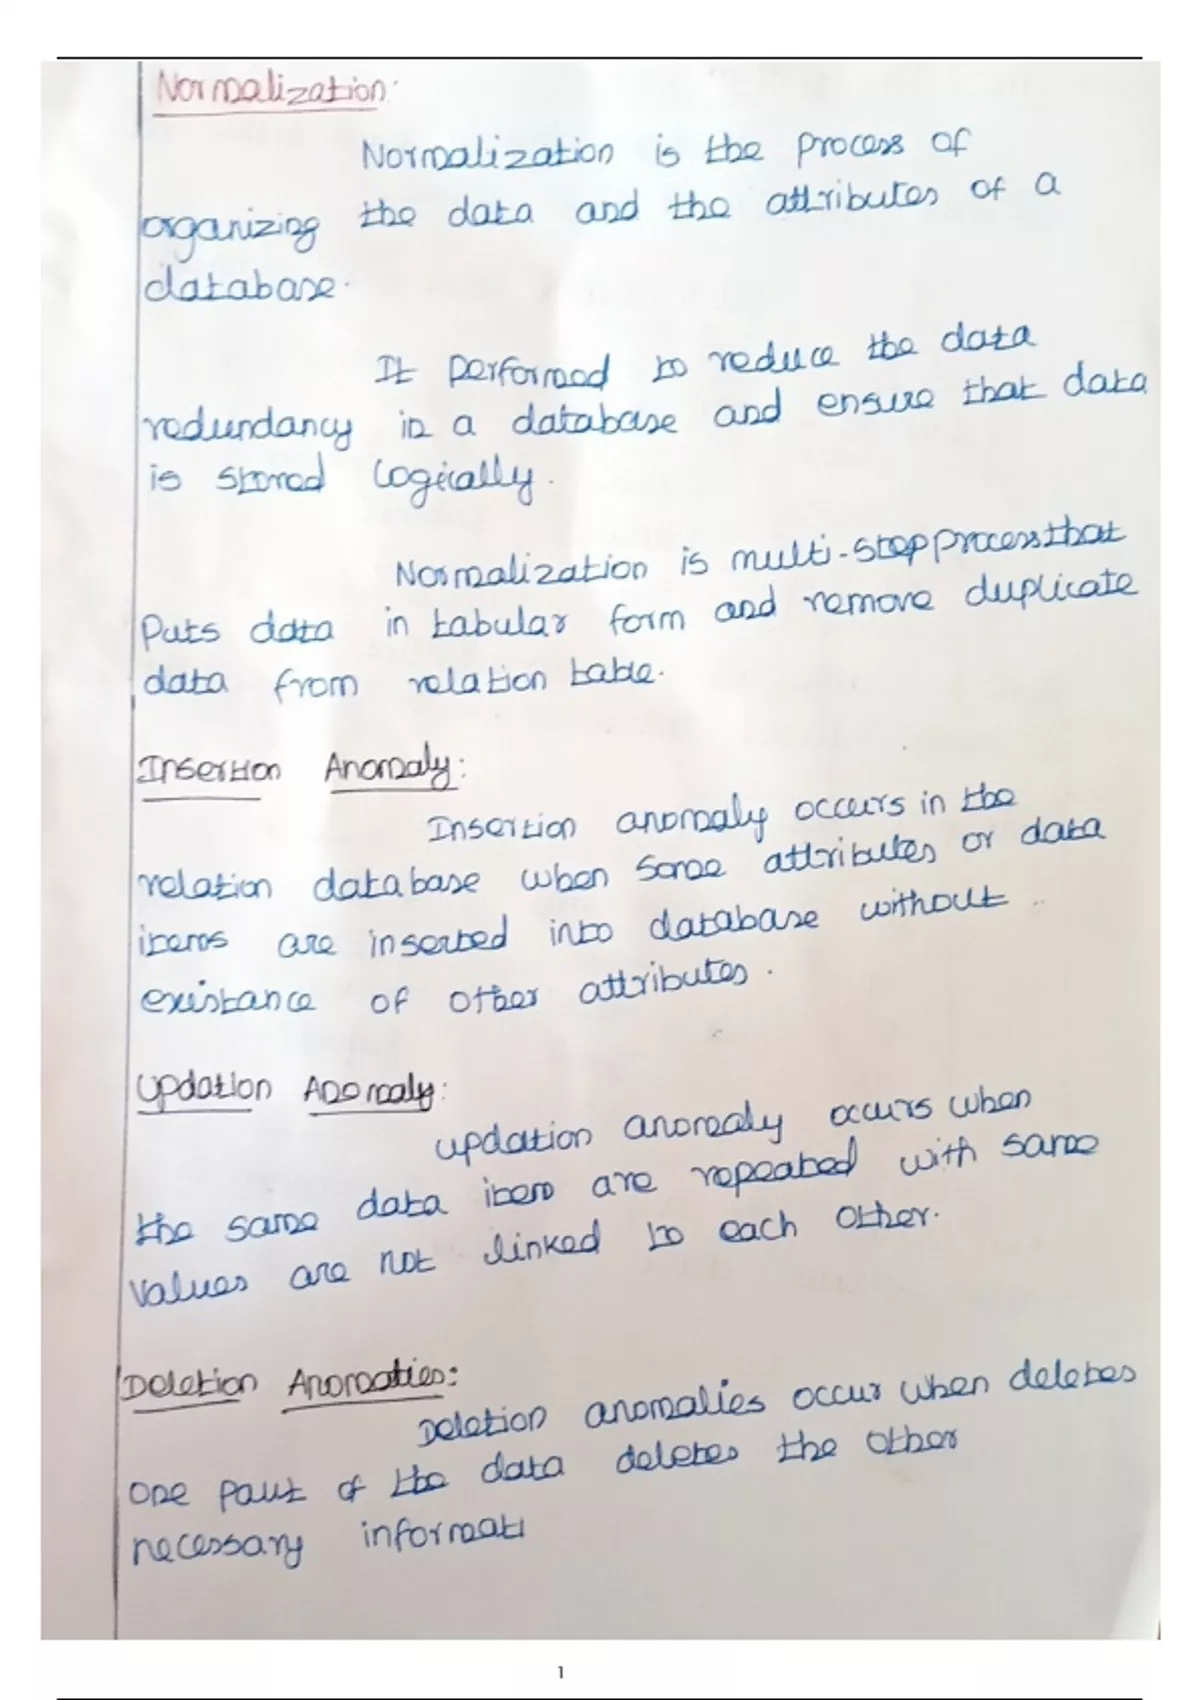 Normalization:
Normalization is the process of
organizing the data and the attributes of a
database.
It performed to reduce the data
redundancy in a database and ensure that data
is stored logically.
Normalization is multi-step process that
Puts data in tabular form and remove duplicate
data from relation table.
Insertion Anomaly:
Insertion anomaly occurs in the
relation database when some attributes or data
items are inserted into database without
existance of other attributes.
Updation Anomaly:
updation anomaly occurs when
the same data item are repeated with same
values are not linked to each other.
Deletion Anomalies:
Deletion anomalies occur when deletes
one part of the data deletes the other
necessary informati
1